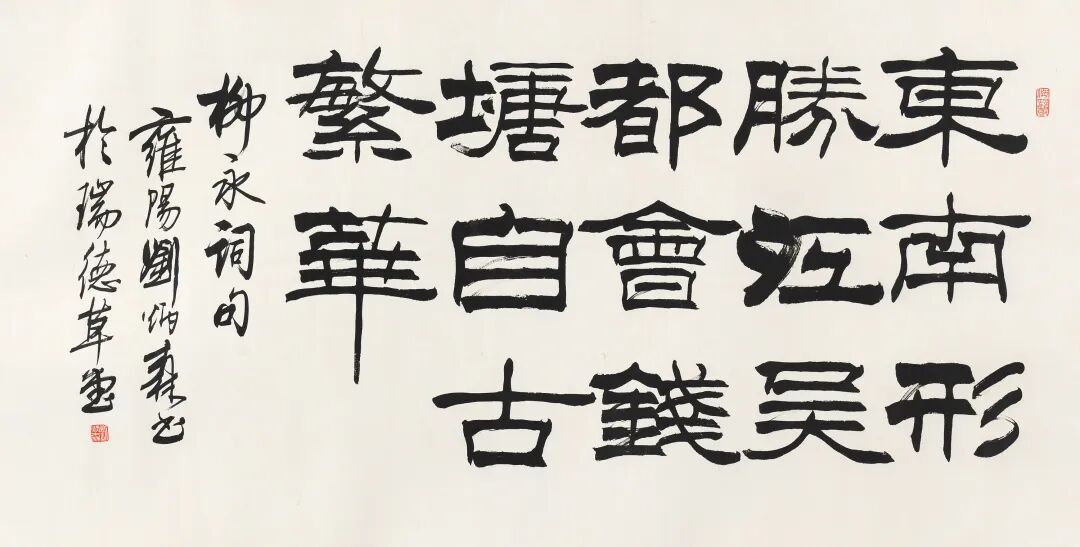 東南形
勝江吴
都會錢
塘自古
繁華
柳永詞句
雍陽劉炳森书
於瑞德草堂